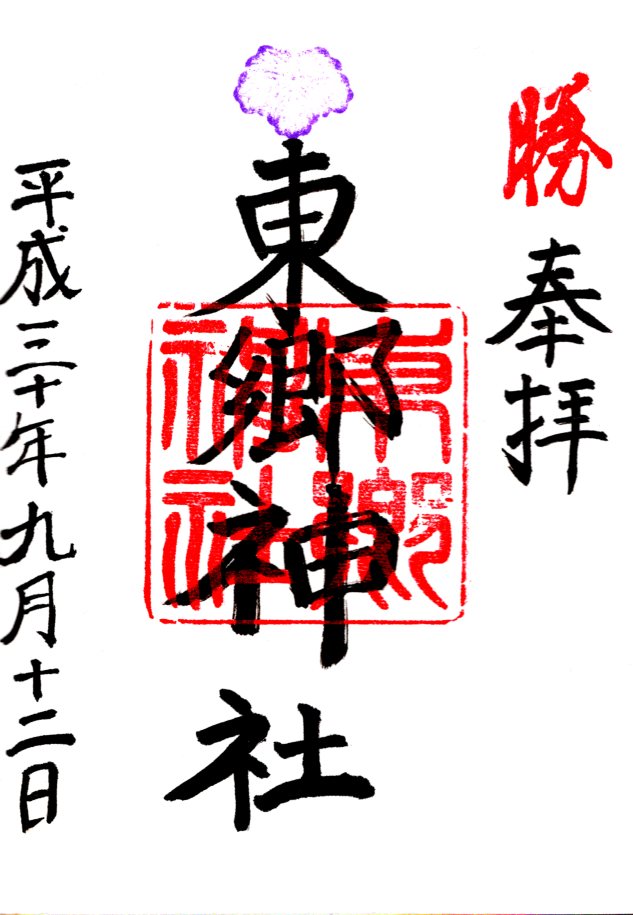 勝
奉拝
東郷神社
東郷神社
平成三十年九月十二日